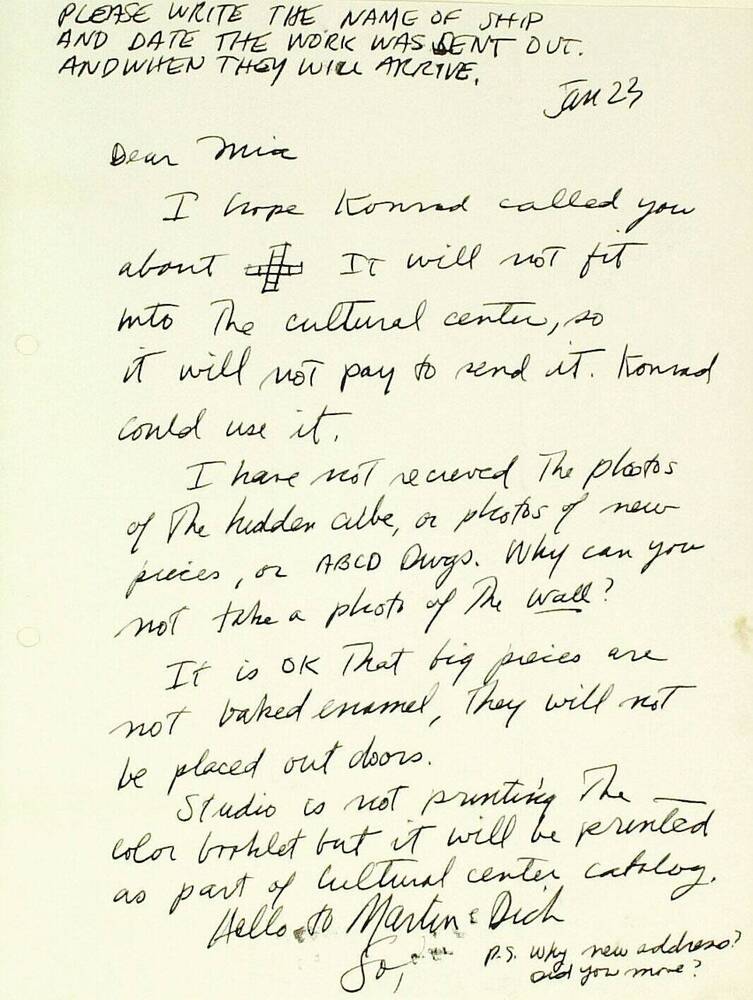 PLEASE WRITE THE NAME OF SHIP
AND DATE THE WORK WAS SENT OUT.
AND WHEN THEY WILL ARRIVE.
Jan 23
Dear Mia
I hope Konrad called you
about It will not fit
into The cultural center, so
it will not pay to send it. Konrad
could use it.
I have not recieved The photos
of The hidden cube, or photos of new
pieces, or ABCD Dwgs. Why can you
not take a photo of The wall?
It is OK That big pieces are
not baked enamel, They will not
be placed out doors.
Studio is not printing The
color booklet but it will be printed
as part of cultural center catalog.
Hello to Martin & Dich
So,
P.S. Why new address?
did you move?